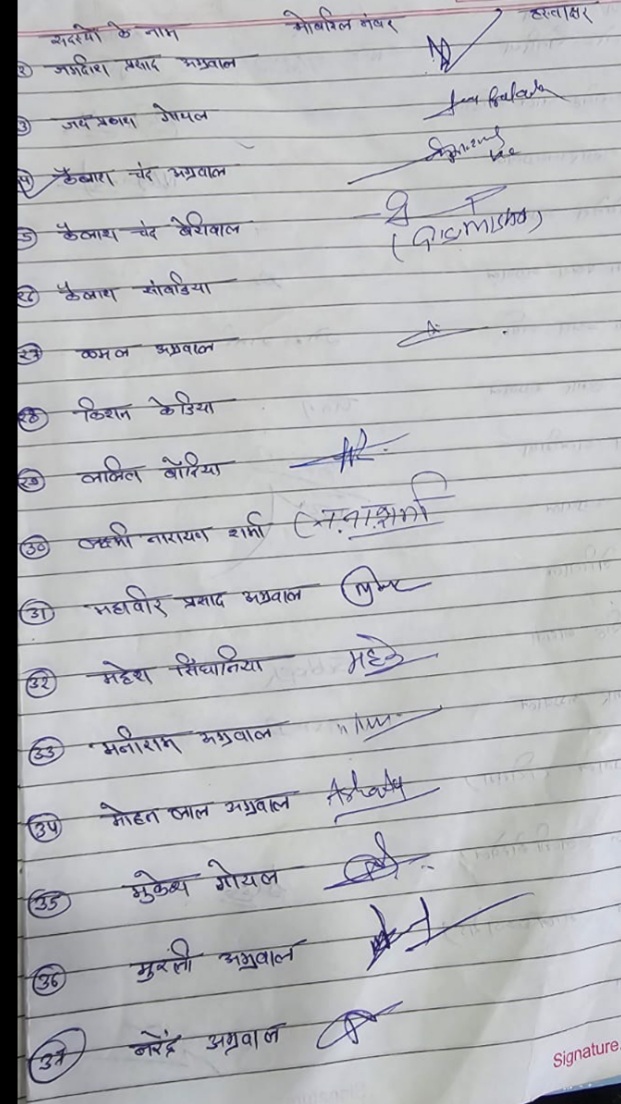 सदस्यों के नाम मोबाईल नंबर हस्ताक्षर
जगदीश प्रसाद अग्रवाल
जय प्रकाश गोयल Jai Prakash
कैलाश चंद अग्रवाल
कैलाश चंद बेरीवाल
कैलाश सांवडिया
२७ कमल अग्रवाल
२८ किशन केडिया
२९ ललित बोंदिया
३० लक्ष्मी नारायण शर्मा
३१ महावीर प्रसाद अग्रवाल
३२ महेश सिंघानिया महेश
३३ मनीराम अग्रवाल
३४ मोहन लाल अग्रवाल
३५ मुकेश गोयल
३६ मुरली अग्रवाल
३७ नरेंद्र अग्रवाल
Signature